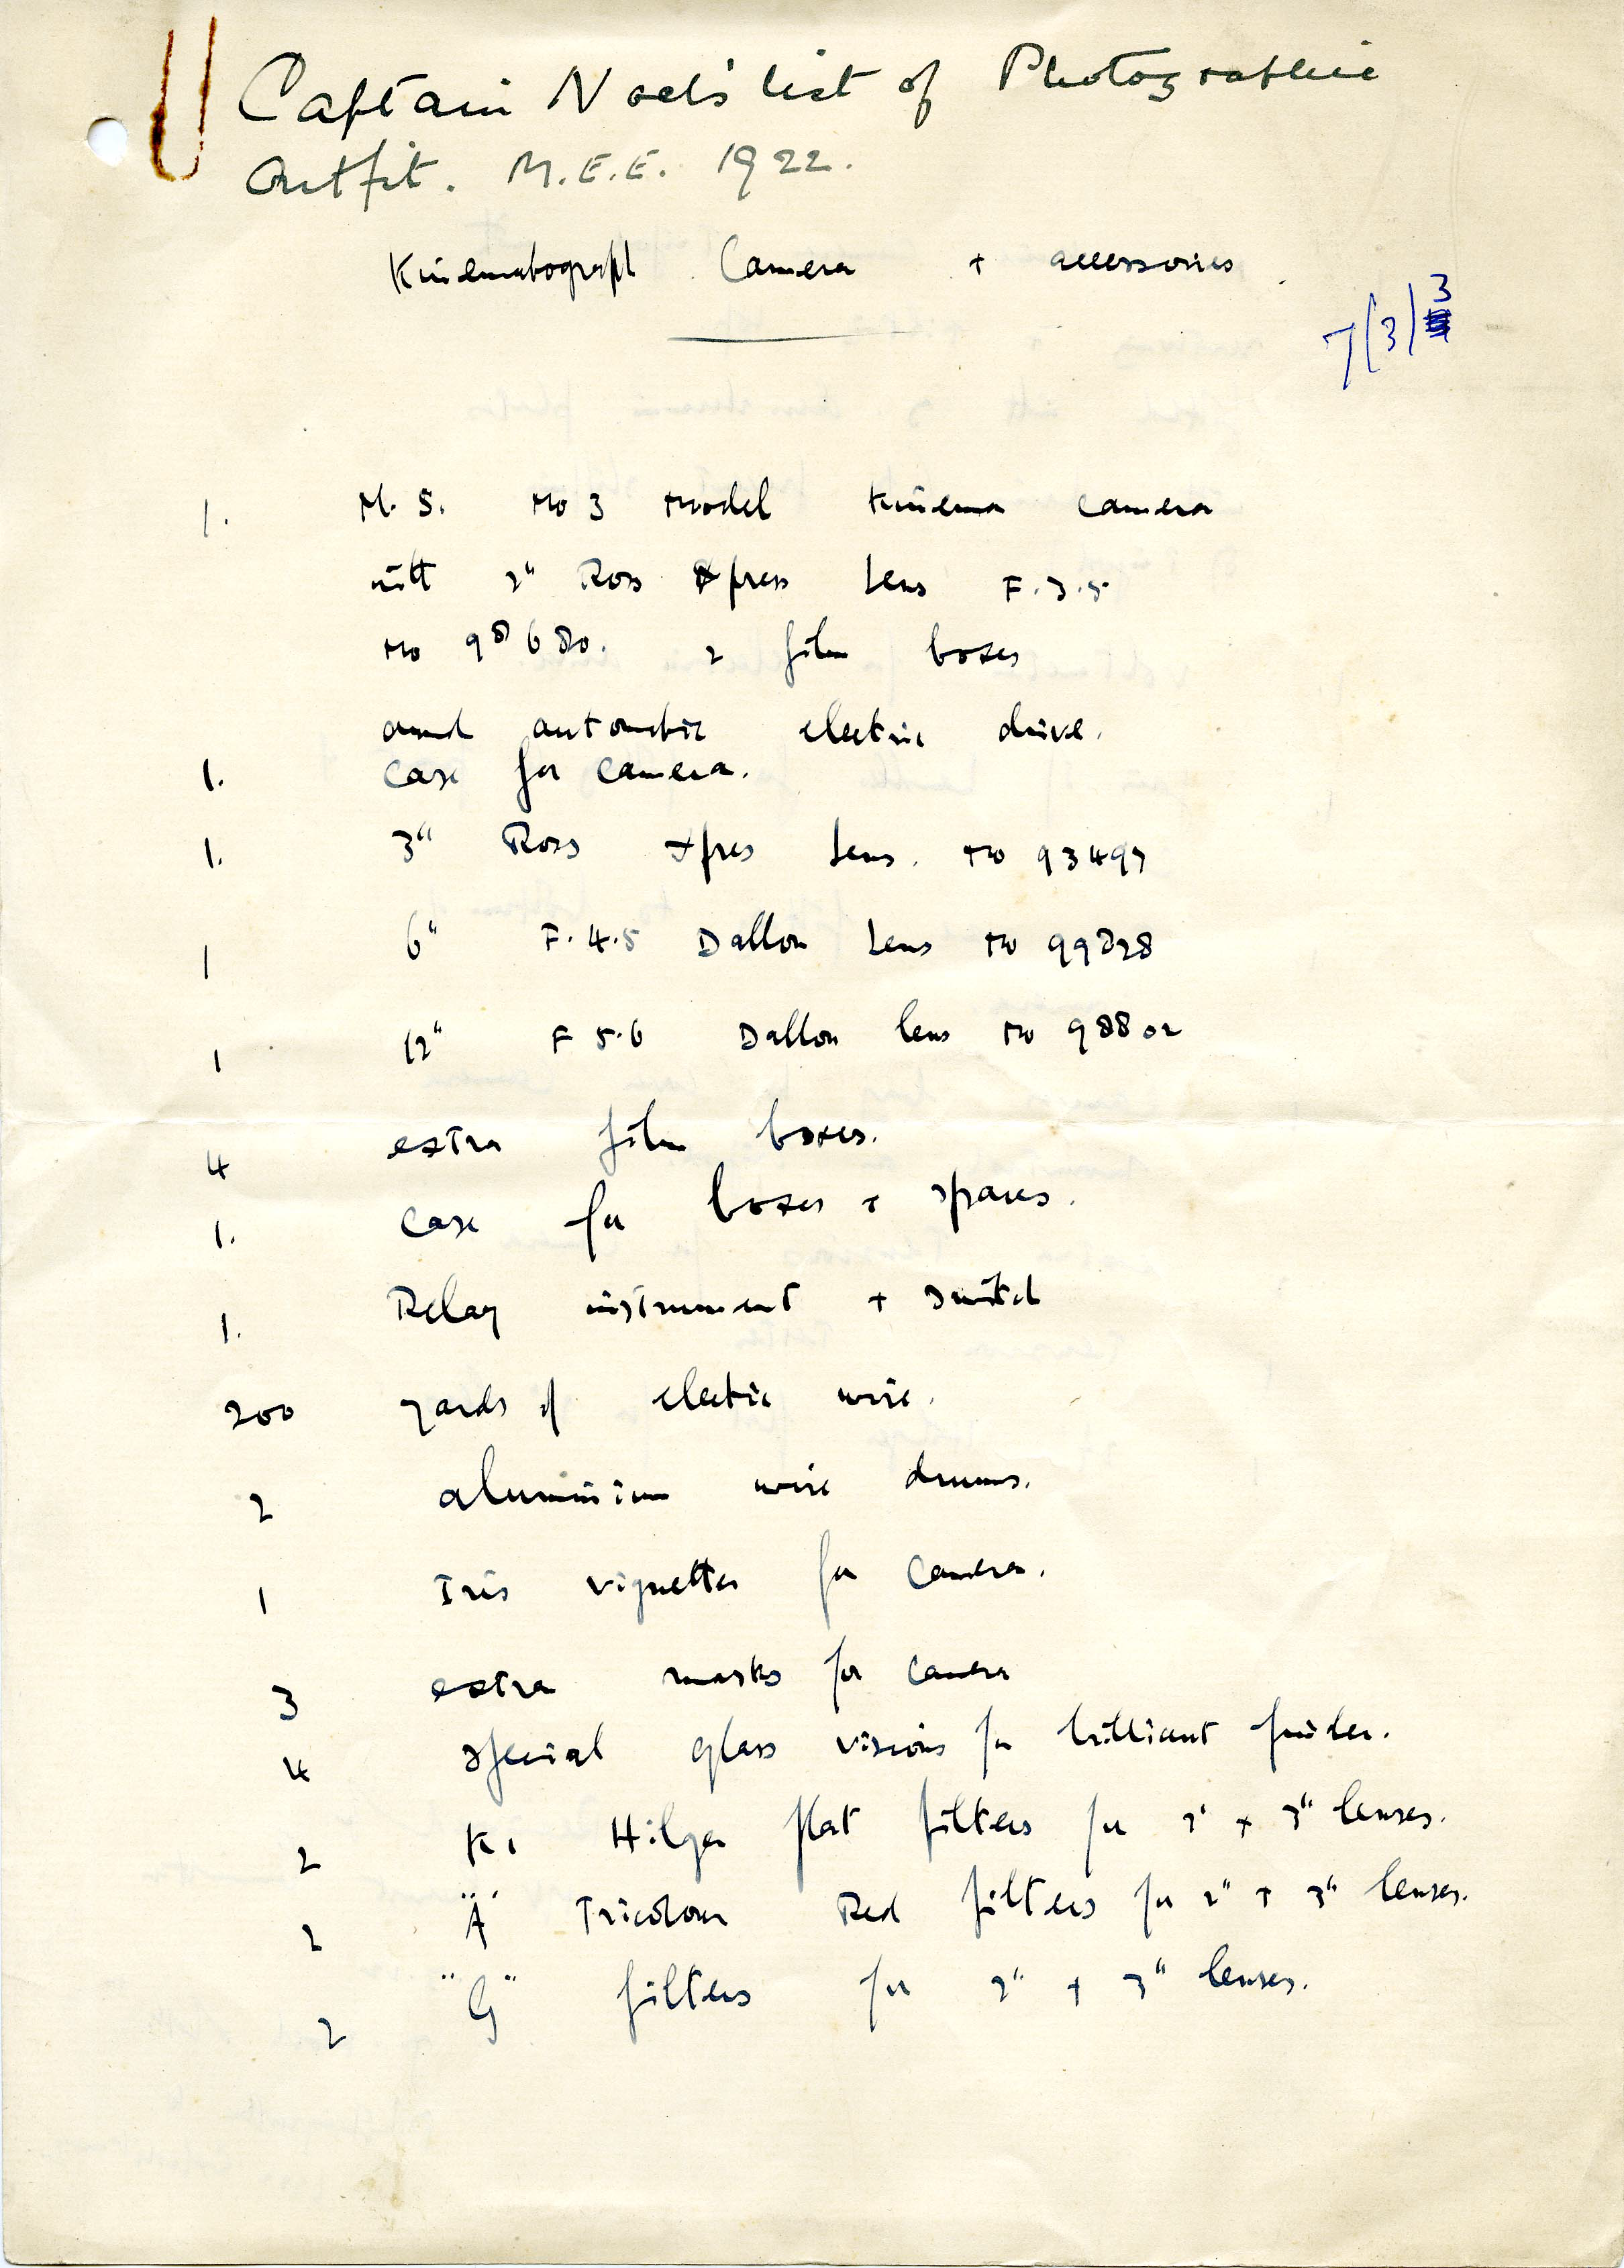 Captain Noel's list of Photographic
Outfit. M.E.E. 1922.
Kinematograph Camera + accessories.
7(3)3
1. N. S. No 3 Model Kinema Camera
with 2" Ross Xpres Lens F.3.5
No 98680. 2 film boxes
and automatic electric drive.
1. Case for camera.
1. 3" Ross Xpres Lens. No 93497
1 6" F.4.5 Dallon Lens No 99828
1 12" F 5.6 Dallon lens No 98802
4 extra film boxes.
1. Case for boxes + spares.
1. Relay instrument + switch
200 yards of electric wire.
2 aluminium wire drums.
1 Iris vignetter for camera.
3 extra masks for camera
4 special glass visions for brilliant finder.
2 K1 Hilger flat filters for 2" + 3" lenses.
2 "A" Tricolour Red filters for 2" + 3" lenses.
2 "G" filters for 2" + 3" lenses.